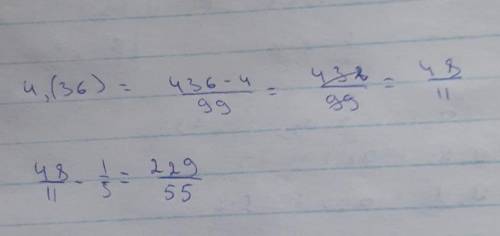 4,(36) = \frac{436-4}{99} = \frac{432}{99} = \frac{48}{11}
\frac{48}{11} - \frac{1}{5} = \frac{229}{55}